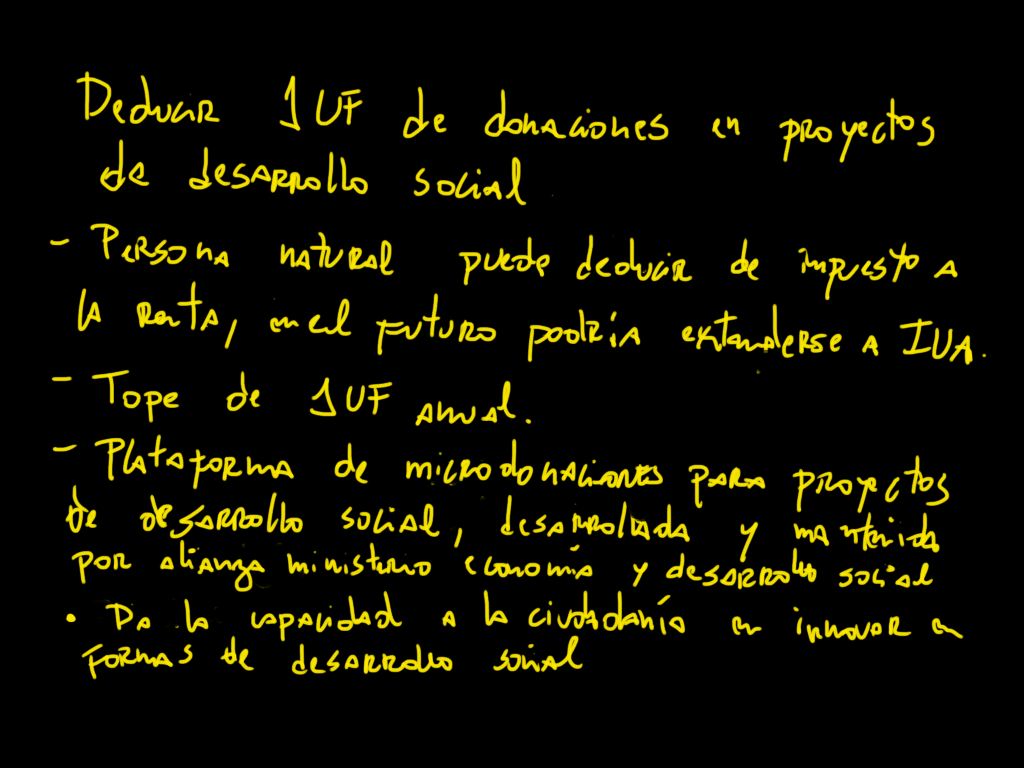 Deducir 1 UF de donaciones en proyectos
de desarrollo social
- Persona natural puede deducir de impuesto a
la renta, en el futuro podría extenderse a IVA.
- Tope de 1 UF anual.
- Plataforma de microdonaciones para proyectos
de desarrollo social, desarrollada y mantenida
por alianza ministerio economía y desarrollo social
• Da la capacidad a la ciudadanía en innovar en
formas de desarrollo social